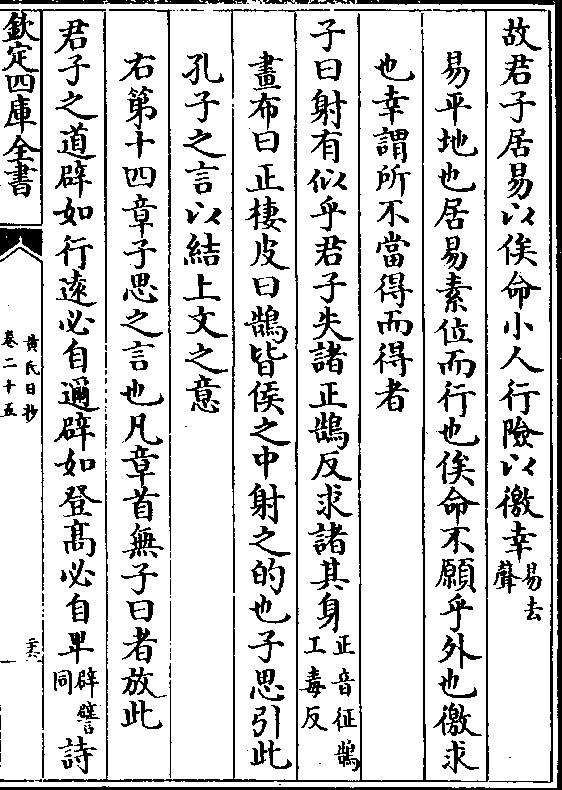 故君子居易以俟命小人行險以徼幸易去聲
易平地也居易素位而行也俟命不願乎外也徼求
也幸謂所不當得而得者
子曰射有似乎君子失諸正鵠反求諸其身正音征鵠工毒反
畫布曰正棲皮曰鵠皆侯之中射之的也子思引此
孔子之言以結上文之意
右第十四章子思之言也凡章首無子曰者放此
君子之道辟如行遠必自邇辟如登髙必自卑辟譬同詩
欽定四庫全書
黄氏日抄
卷二十五